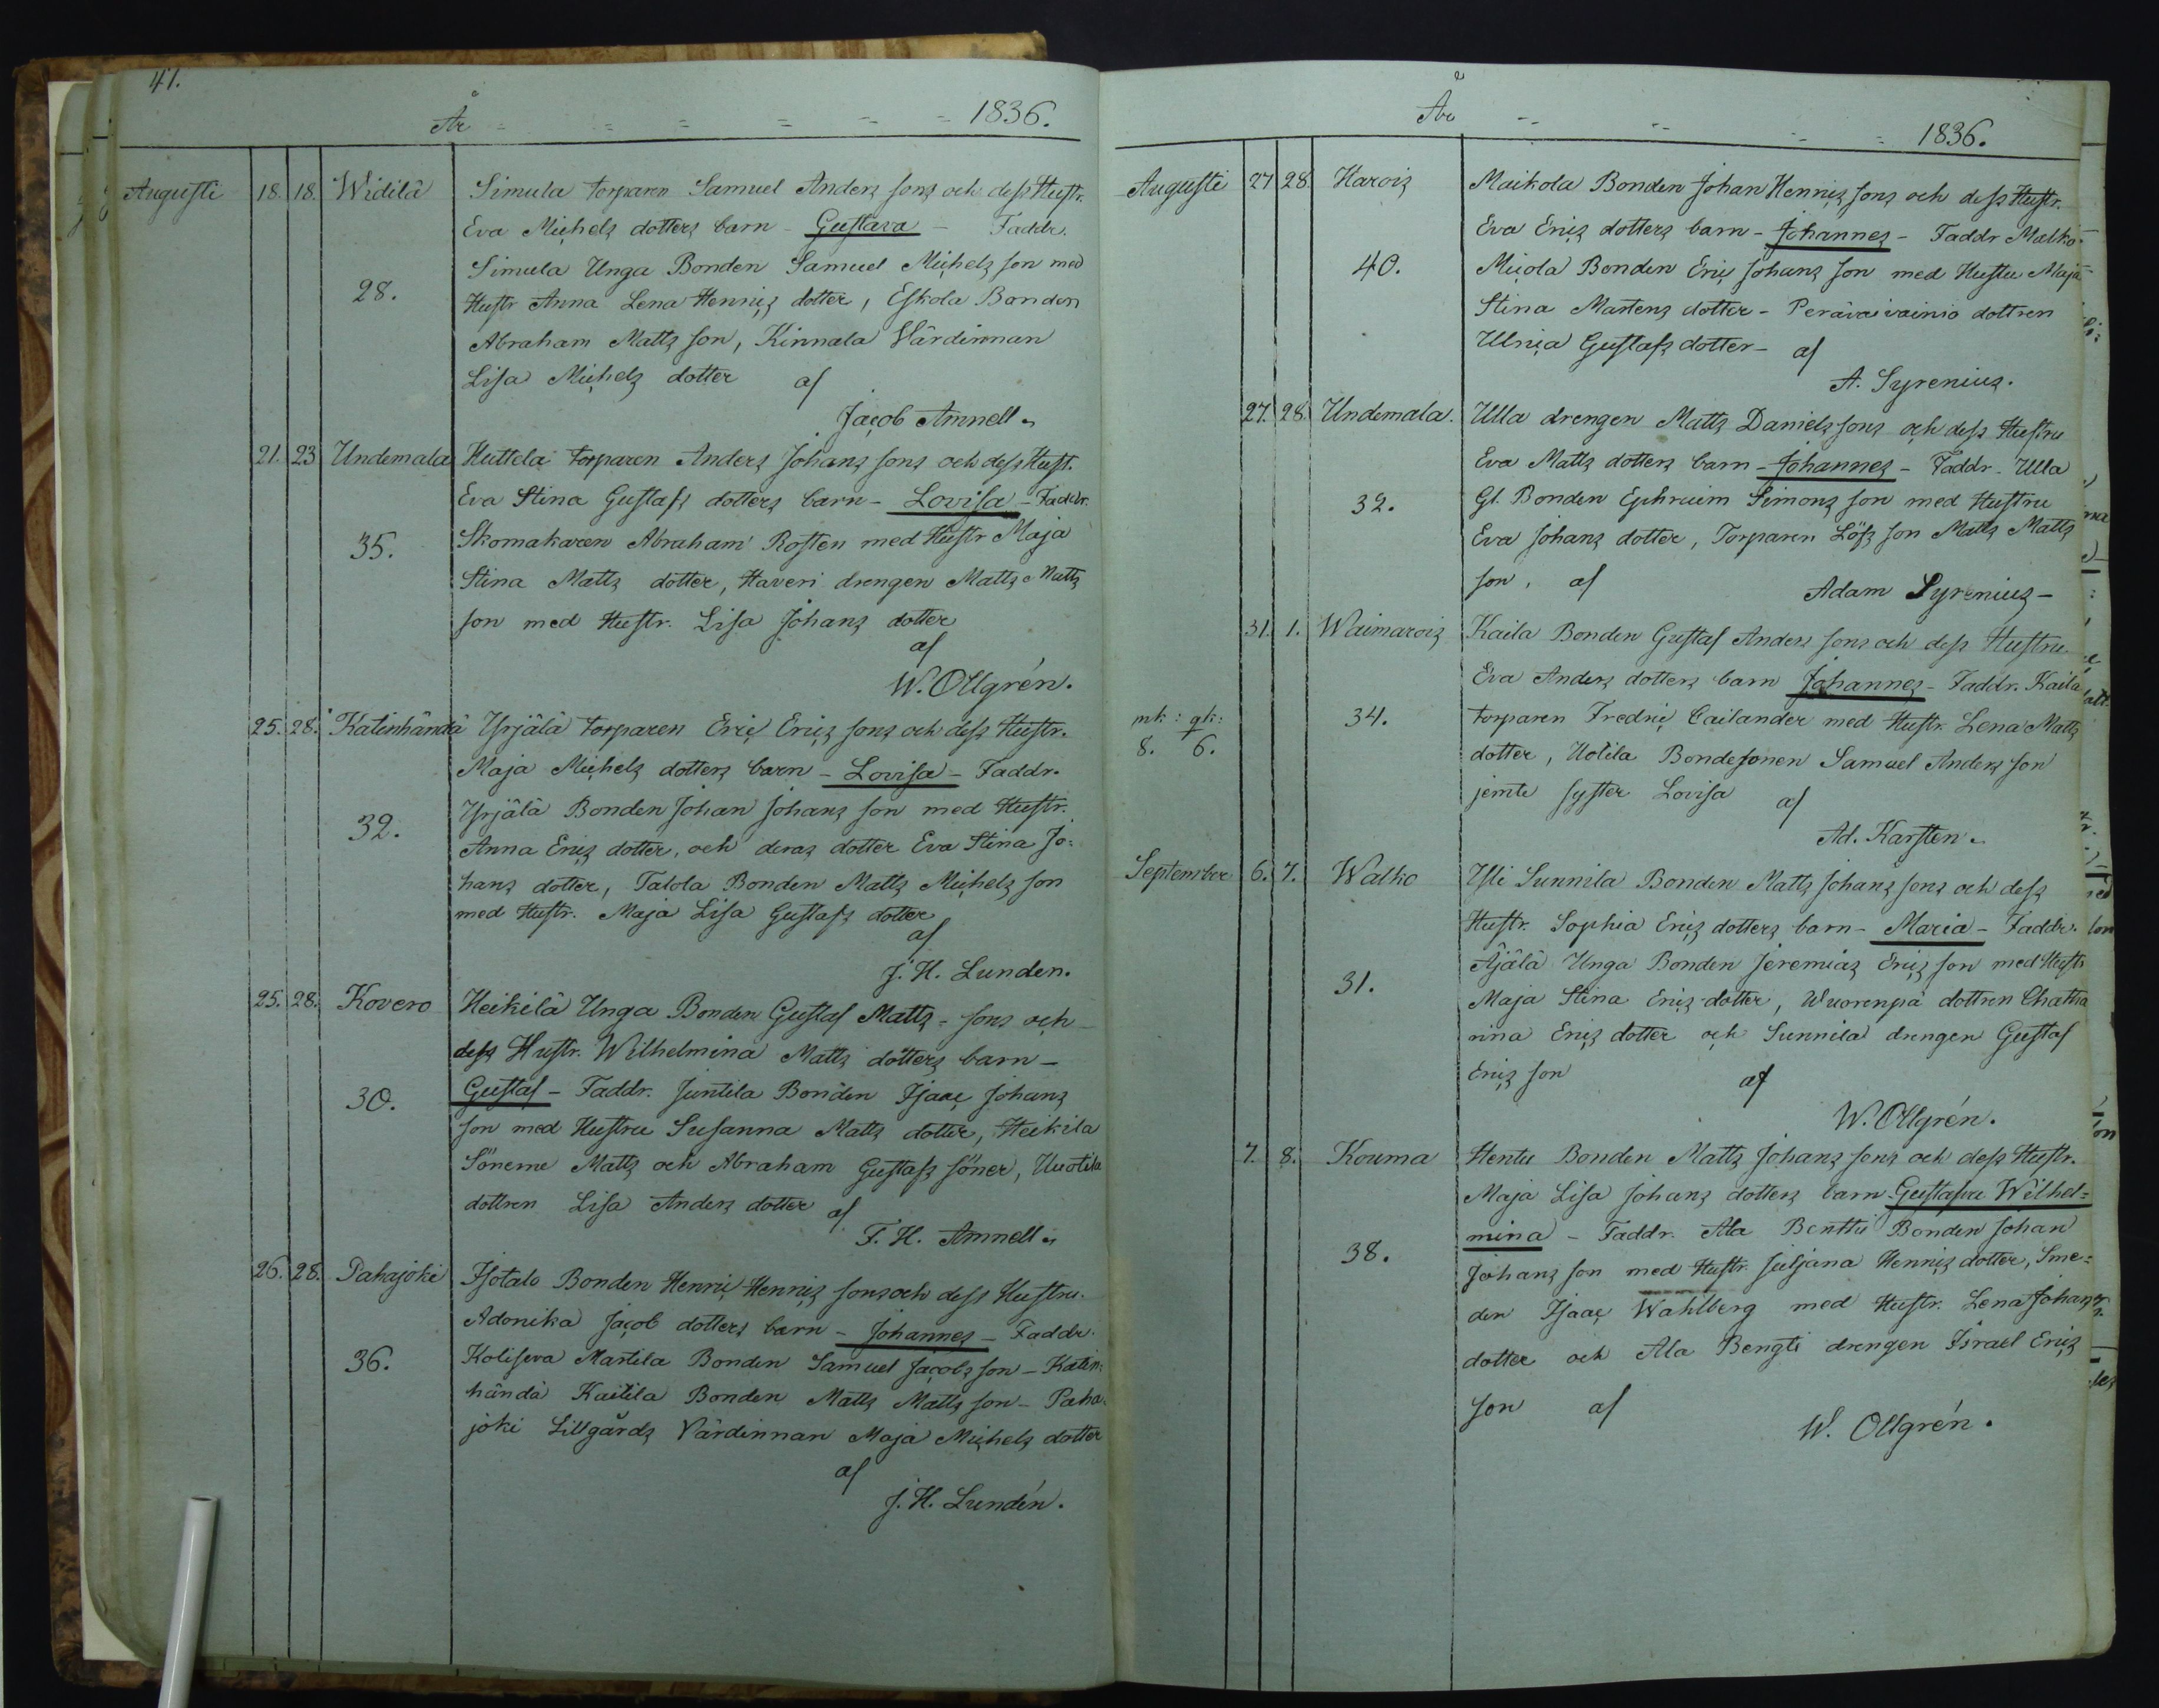 41.
År = = = = = = 1836.
Augusti 18. 18. Widilä Simula torparen Samuel Anders sons och dess Hustr.
Eva Michels dotters barn - Gustava - Faddr.
Simula Unga Bonden Samuel Michels son med
28. Hustr Anna Lena Henrics dotter, Eskola Bonden
Abraham Matts son, Kinnala Värdinnan
Lisa Michels dotter af
Jacob Amnell.
21. 23 Undemala Huttela torparen Anders Johans sons och dess Hust.
Eva Stina Gustafs dotters barn - Lovisa - Faddr.
35. Skomakaren Abraham Rosten med Hustr Maja
Stina Matts dotter, Haveri drengen Matts Matts
son med Hustr. Lisa Johans dotter
af
W. Ollgrén.
25. 28. Katinhändä Yrjälä torparen Eric Erics sons och dess Hustr.
Maja Michels dotters barn - Lovisa - Faddr.
32. Yrjälä Bonden Johan Johans son med Hustr.
Anna Erics dotter, och deras dotter Eva Stina Jo=
hans dotter, Talola Bonden Matts Michels son
med Hustr. Maja Lisa Gustafs dotter
af
J. H. Lunden.
25. 28. Kovero Heikilä Unga Bonden Gustaf Matts = sons och
dess Hustr. Wilhelmina Matts dotters barn -
30. Gustaf - Faddr. Juntila Bonden Isaac Johans
son med Hustru Susanna Matts dotter, Heikila
Sönerne Matts och Abraham Gustafs söner, Uuotila
dottren Lisa Anders dotter af
F. H. Amnell.
26. 28. Pahajoki Isotalo Bonden Henric Henrics sons och dess Hustru
Adonika Jacob dotters barn - Johannes - Faddr.
36. Koliseva Martila Bonden Samuel Jacobs son - Katin=
händä Kaitila Bonden Matts Matts son - Paha=
joki Lillgårds Värdinnan Maja Michels dotter
af
J. H. Lundén.
År - - - = 1836.
Augusti 27 28. Harois Maikola Bonden Johan Henrics sons och dess Hustr.
Eva Erics dotters barn - Johannes - Faddr Malko=
40. Micola Bonden Eric Johans son med Hustru Maja=
Stina Mårtens dotter - Perävaivainio dottren
Ulrica Gustafs dotter - af
A. Syrenius.
27. 28. Undemala. Ulla drengen Matts Daniels sons och dess Hustru
Eva Matts dotters barn - Johannes - Faddr. Ulla
32. Gl. Bonden Ephraim Simons son med Hustru
Eva Johans dotter, Torparen Löfs son Matts Matts
son, af Adam Syrenius -
31. 1. Waimarois Kaila Bonden Gustaf Anders sons och dess Hustru
Eva Anders dotters barn Johannes - Faddr. Kaila
mk: qk: 34. torparen Fredric Cailander med Hustr. Lena Matts
8. 6. dotter, Uotila Bondesonen Samuel Anders son
jemte syster Lovisa af
Ad. Karsten.
September 6. 7. Walko Yli Sunnila Bonden Matts Johans sons och dess
Hustr. Sophia Erics dotters barn - Maria - Faddr.
31. Äjälä Unga Bonden Jeremias Erics son med Hustr
Maja Stina Erics dotter, Wuorenpä dottren Chatha
rina Erics dotter och Sunnila drengen Gustaf
Erics son af
W. Ollgrén.
7. 8. Kouma Hentu Bonden Matts Johans sons och dess Hustr.
Maja Lisa Johans dotters barn - Gustafva Wilhel=
38. mina - Faddr. Ala Benttu Bonden Johan
Johans son med Hustr. Juljana Henrics dotter, Sme=
den Isaac Wahlberg med Hustr. Lena Johans
dotter och Ala Bengti drengen Israel Erics
son af
W. Ollgrén.